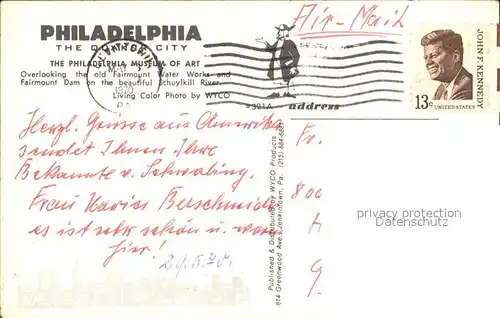 PHILADELPHIA
THE QUAKER CITY
THE PHILADELPHIA MUSEUM OF ART
Overlooking the old Fairmount Water Works and
Fairmount Dam on the beautiful Schuylkill River.
Living Color Photo by WYCO
1970
PA
Air-Mail
JOHN F. KENNEDY
13c
UNITED STATES
address
Herzl. Grüsse aus Amerika
sendet Ihnen Ihre
Bekannte v. Schwabing.
Frau
es ist sehr schön u. warm
hier!
24.5.70.
Published & Distributed by WYCO Products
814 Greenwood Ave., Jenkintown, Pa. (215) 884-
Fr.
800
A
G
privacy protection
VARIOUS